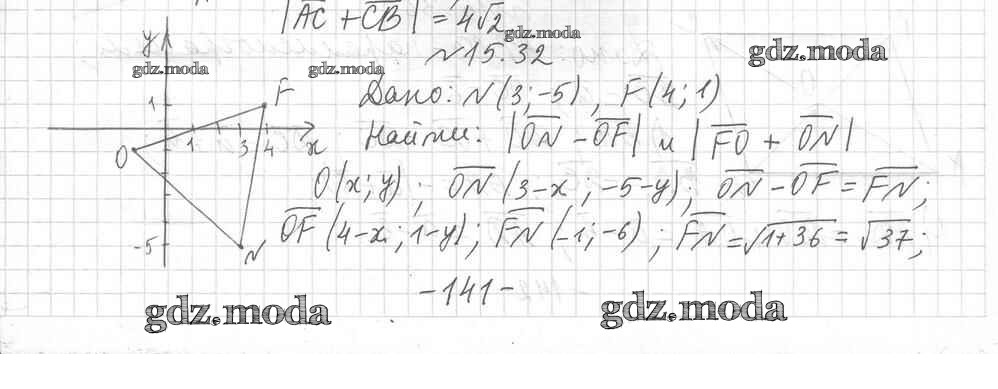 |AC + CB| = 4√2
gdz.moda
№15.32
gdz.moda
y
gdz.moda
gdz.moda
1
F
Дано: N(3;-5), F(4;1)
O
1
3
4
x
Найти: |ON - OF| и |FO + ON|
O(x;y); ON(3-x; -5-y); ON - OF = FN;
-5
N
OF(4-x; 1-y); FN(-1;-6); FN = √1+36 = √37;
-141-
gdz.moda
gdz.moda